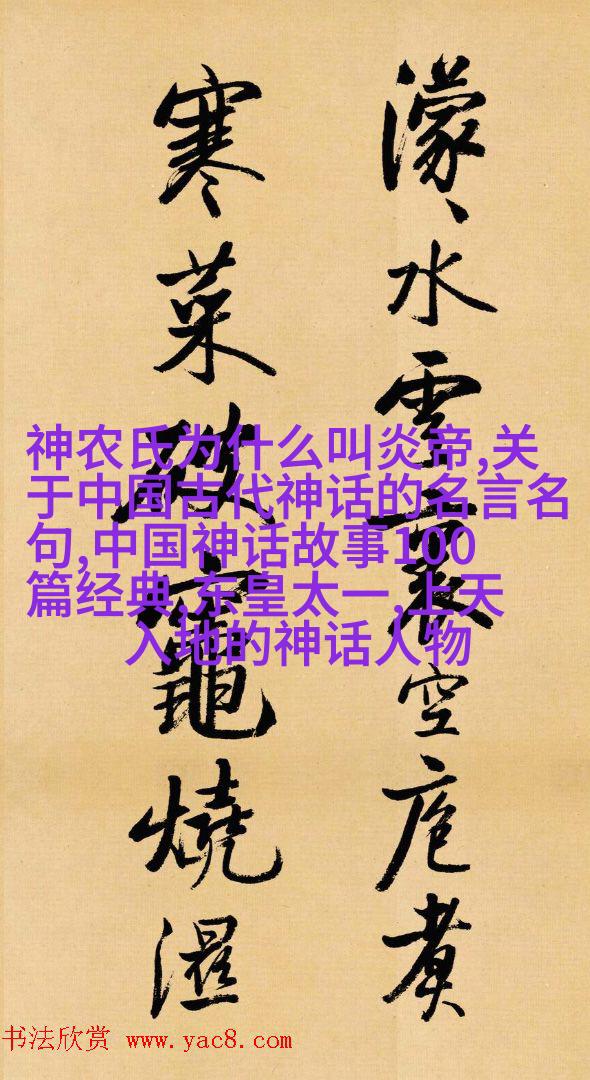 濛〻水雲裏空庖煮
寒菜破竈燒濕
神农氏为什么叫炎帝,关
于中国古代神话的名言名
句,中国神话故事100
篇经典,东皇太一,上天
入地的神话人物
书法欣赏 www.yac8.com